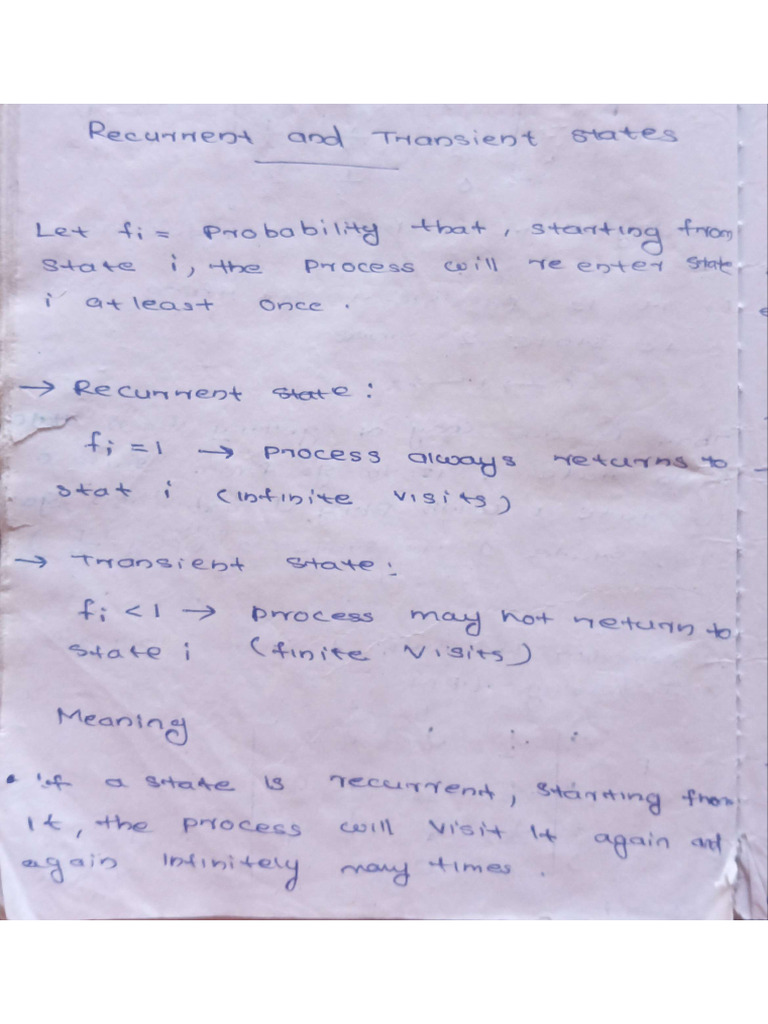 Recurrent and Transient states
Let fi = probability that, starting from
state i, the process will re enter state
i atleast once.
→ Recurrent state:
fi = 1 → process always returns to
stat i (infinite visits)
→ Transient state:
fi < 1 → process may not return to
state i (finite visits)
Meaning
• if a state is recurrent, starting from
it, the process will visit it again and
again infinitely many times.